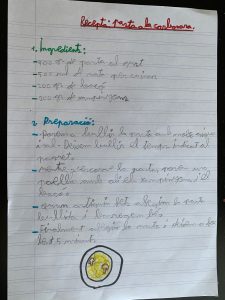 Recepta: pasta a la carbonara.
1. Ingredients:
- 400 gr de pasta al gust
- 500 ml de nata per cuinar
- 200 gr de bacó
- 200 gr de xampinyons
2. Preparació:
- posem a bullir la pasta amb molta aigua
i sal. Deixem bullir el temps indicat al
paquet.
- mentre s'escorre la pasta, posem una
paella amb oli els xampinyons i el
bacó.
- quan estiguin fets afegim la pasta
bullida i barregem bé.
- Finalment afegim la nata i deixem a foc
lent 5 minuts.